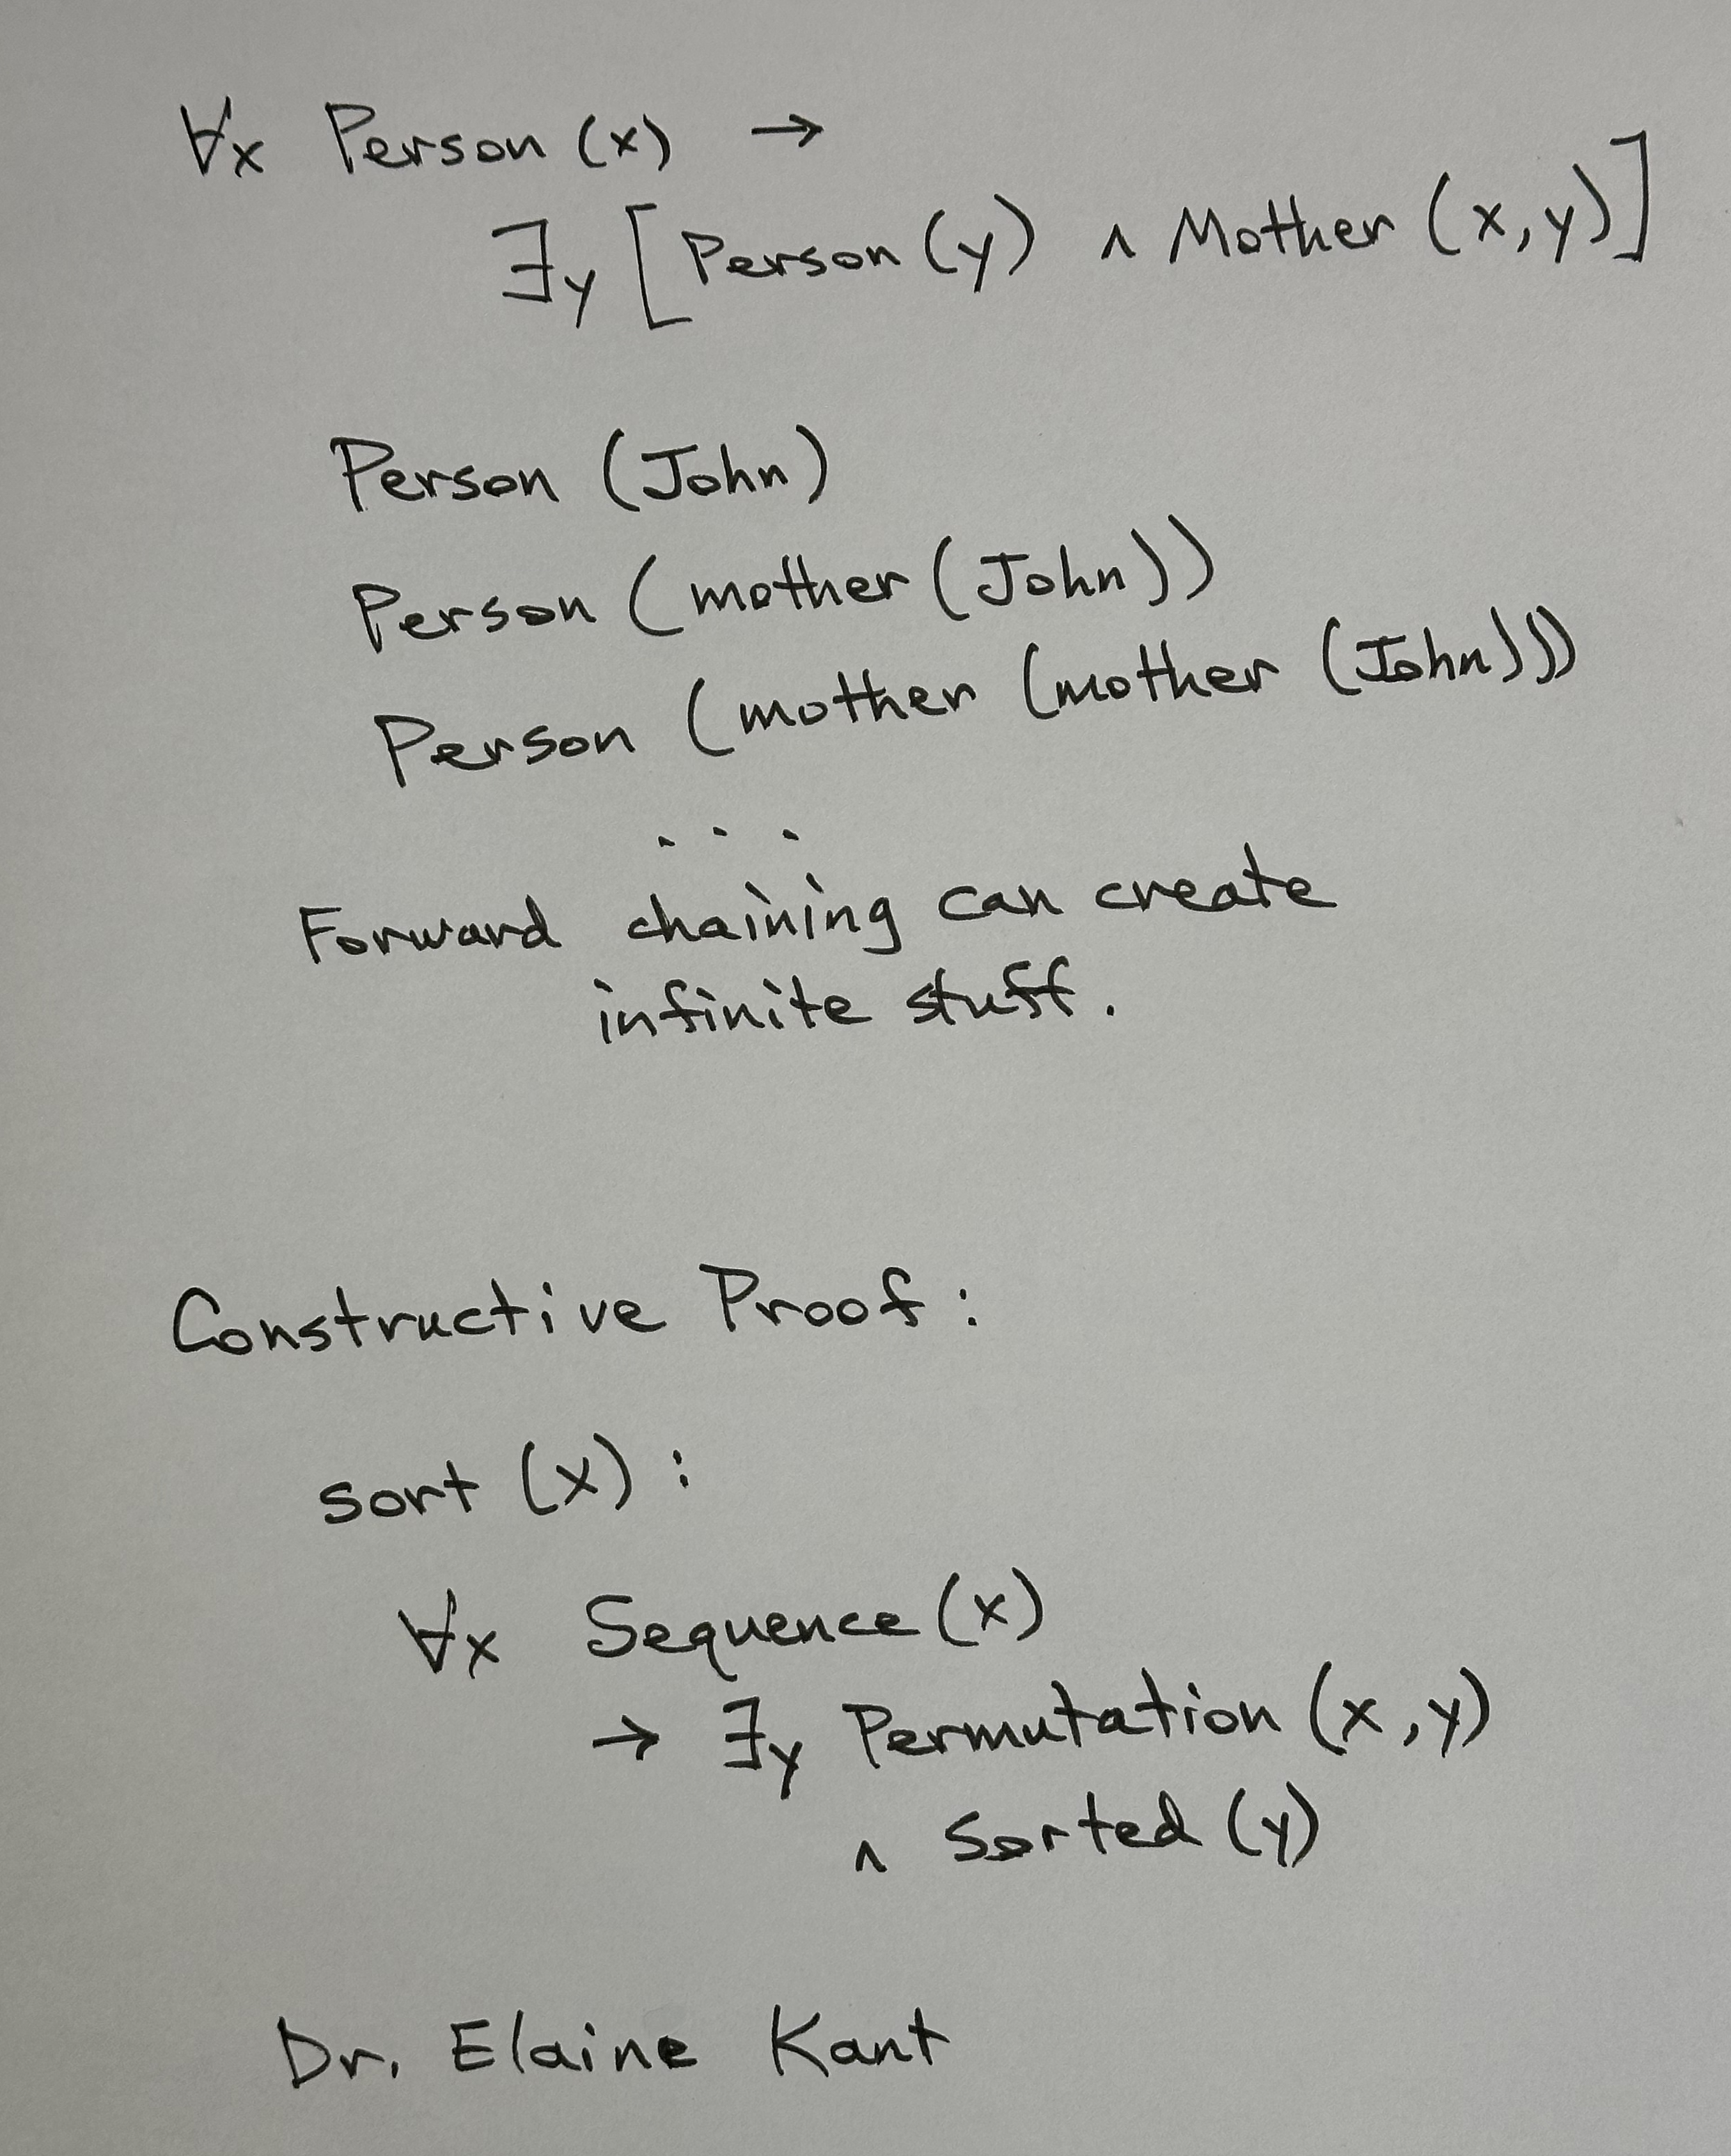 ∀x Person (x) →
∃y [Person (y) ∧ Mother (x,y)]
Person (John)
Person (mother (John))
Person (mother (mother (John)))
. . .
Forward chaining can create
infinite stuff.
Constructive Proof:
sort (x):
∀x Sequence (x)
→ ∃y Permutation (x,y)
∧ Sorted (y)
Dr. Elaine Kant